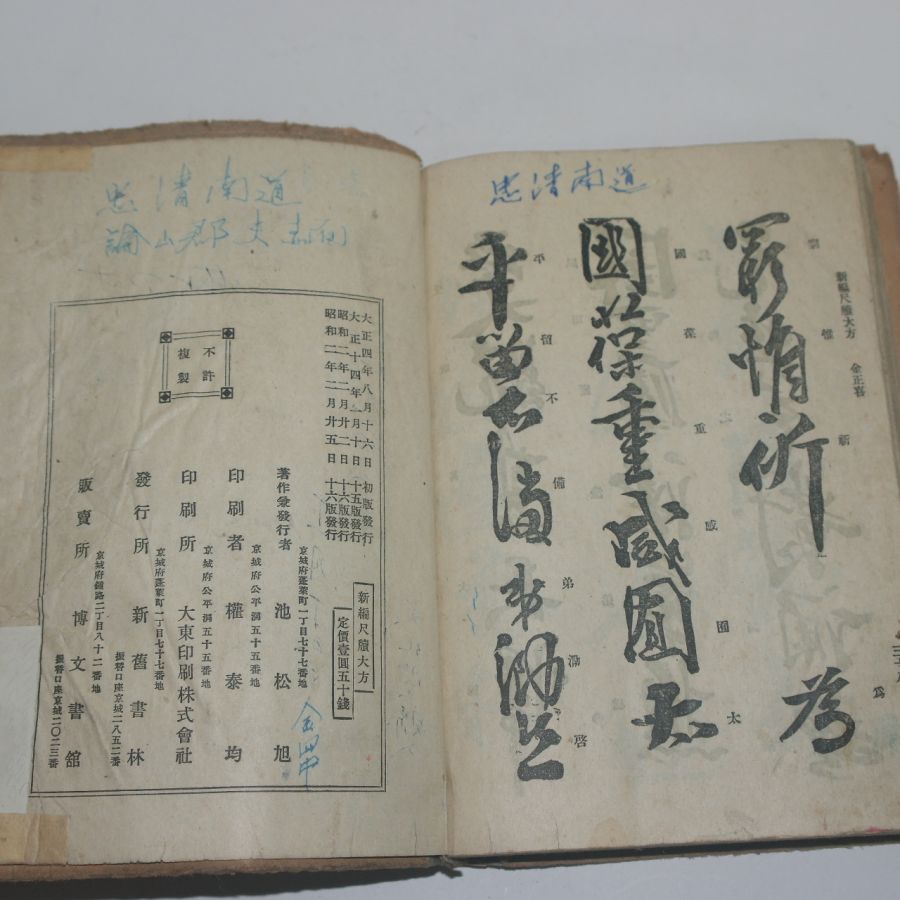 忠清南道
新編尺牘大方
金正喜
窮惟新
為
國葆重咸囿太
平留不備弟泐啓
忠清南道
論山郡
大正四年八月十六日初版發行
大正十四年一月十日十五版發行
昭和二年二月廿二日十六版發行
昭和二年二月廿五日十六版發行
不許複製
新編尺牘大方
定價壹圓五十錢
京城府蓬萊町一丁目七十七番地
著作兼發行者 池松旭
京城府公平洞五十五番地
印刷者 權泰均
京城府公平洞五十五番地
印刷所 大東印刷株式會社
京城府蓬萊町一丁目七十七番地
發行所 新舊書林
振替口座京城二八五二番
京城府鍾路二丁目八十二番地
販賣所 博文書舘
振替口座京城二〇二三番